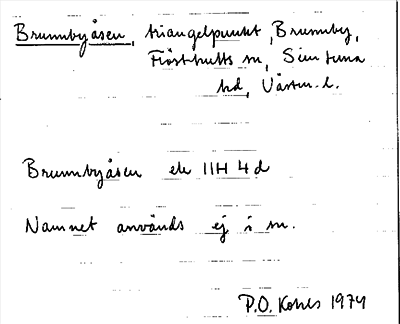 Brunnbyåsen, triangelpunkt, Brunnby,
Frösthults sn, Simtuna
hd, Västm. l.
Brunnbyåsen ek 11H 4d
Namnet används ej i sn.
P.O. Kohls 1974